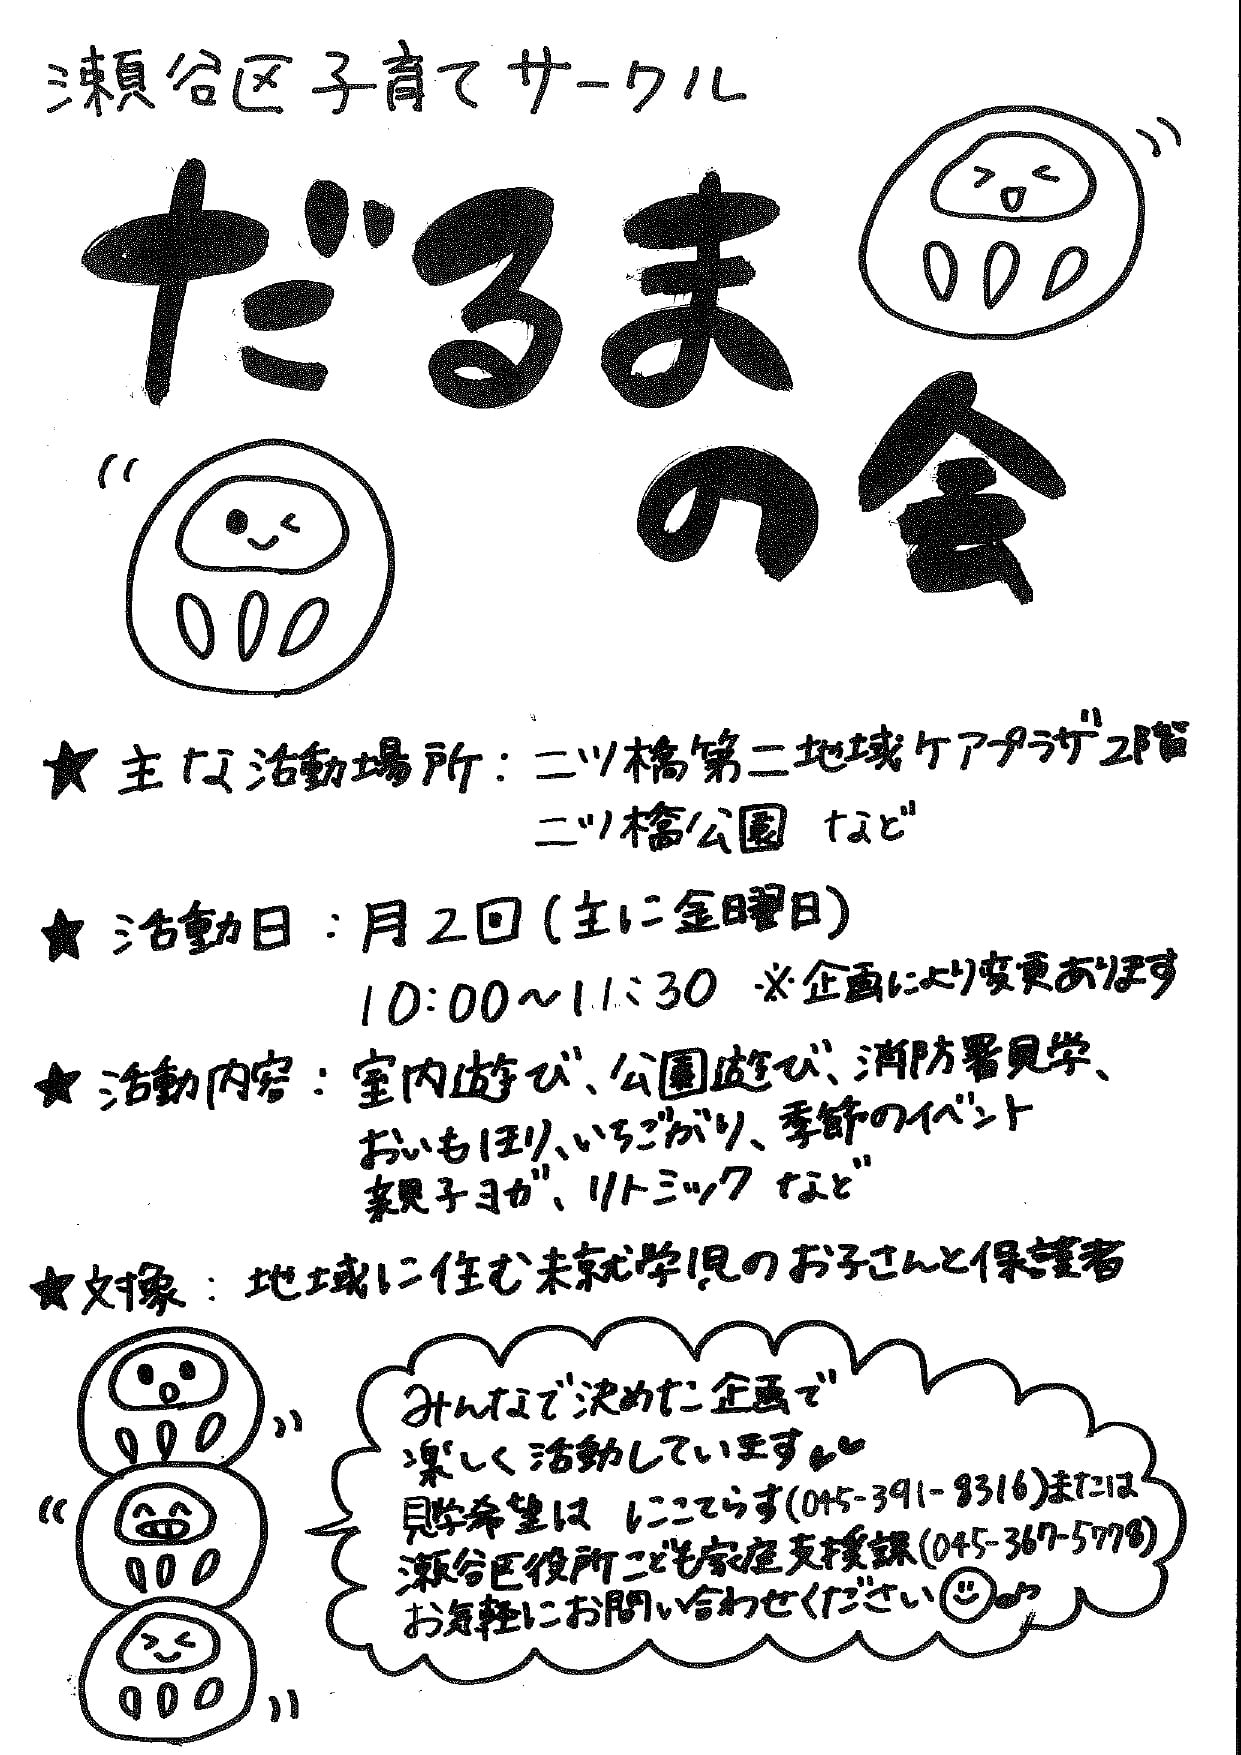 瀬谷区子育てサークル
だるま
の会
★主な活動場所：二ツ橋第二地域ケアプラザ2階
二ツ橋公園 など
★活動日：月2回(主に金曜日)
10:00～11:30 ※企画により変更あります
★活動内容：室内遊び、公園遊び、消防署見学、
おいもほり、いちごがり、季節のイベント
親子ヨガ、リトミック など
★対象：地域に住む未就学児のお子さんと保護者
みんなで決めた企画で
楽しく活動しています♥♥
見学希望は にこてらす(045-391-8316)または
瀬谷区役所こども家庭支援課(045-367-5778)
お気軽にお問い合わせください☺♪